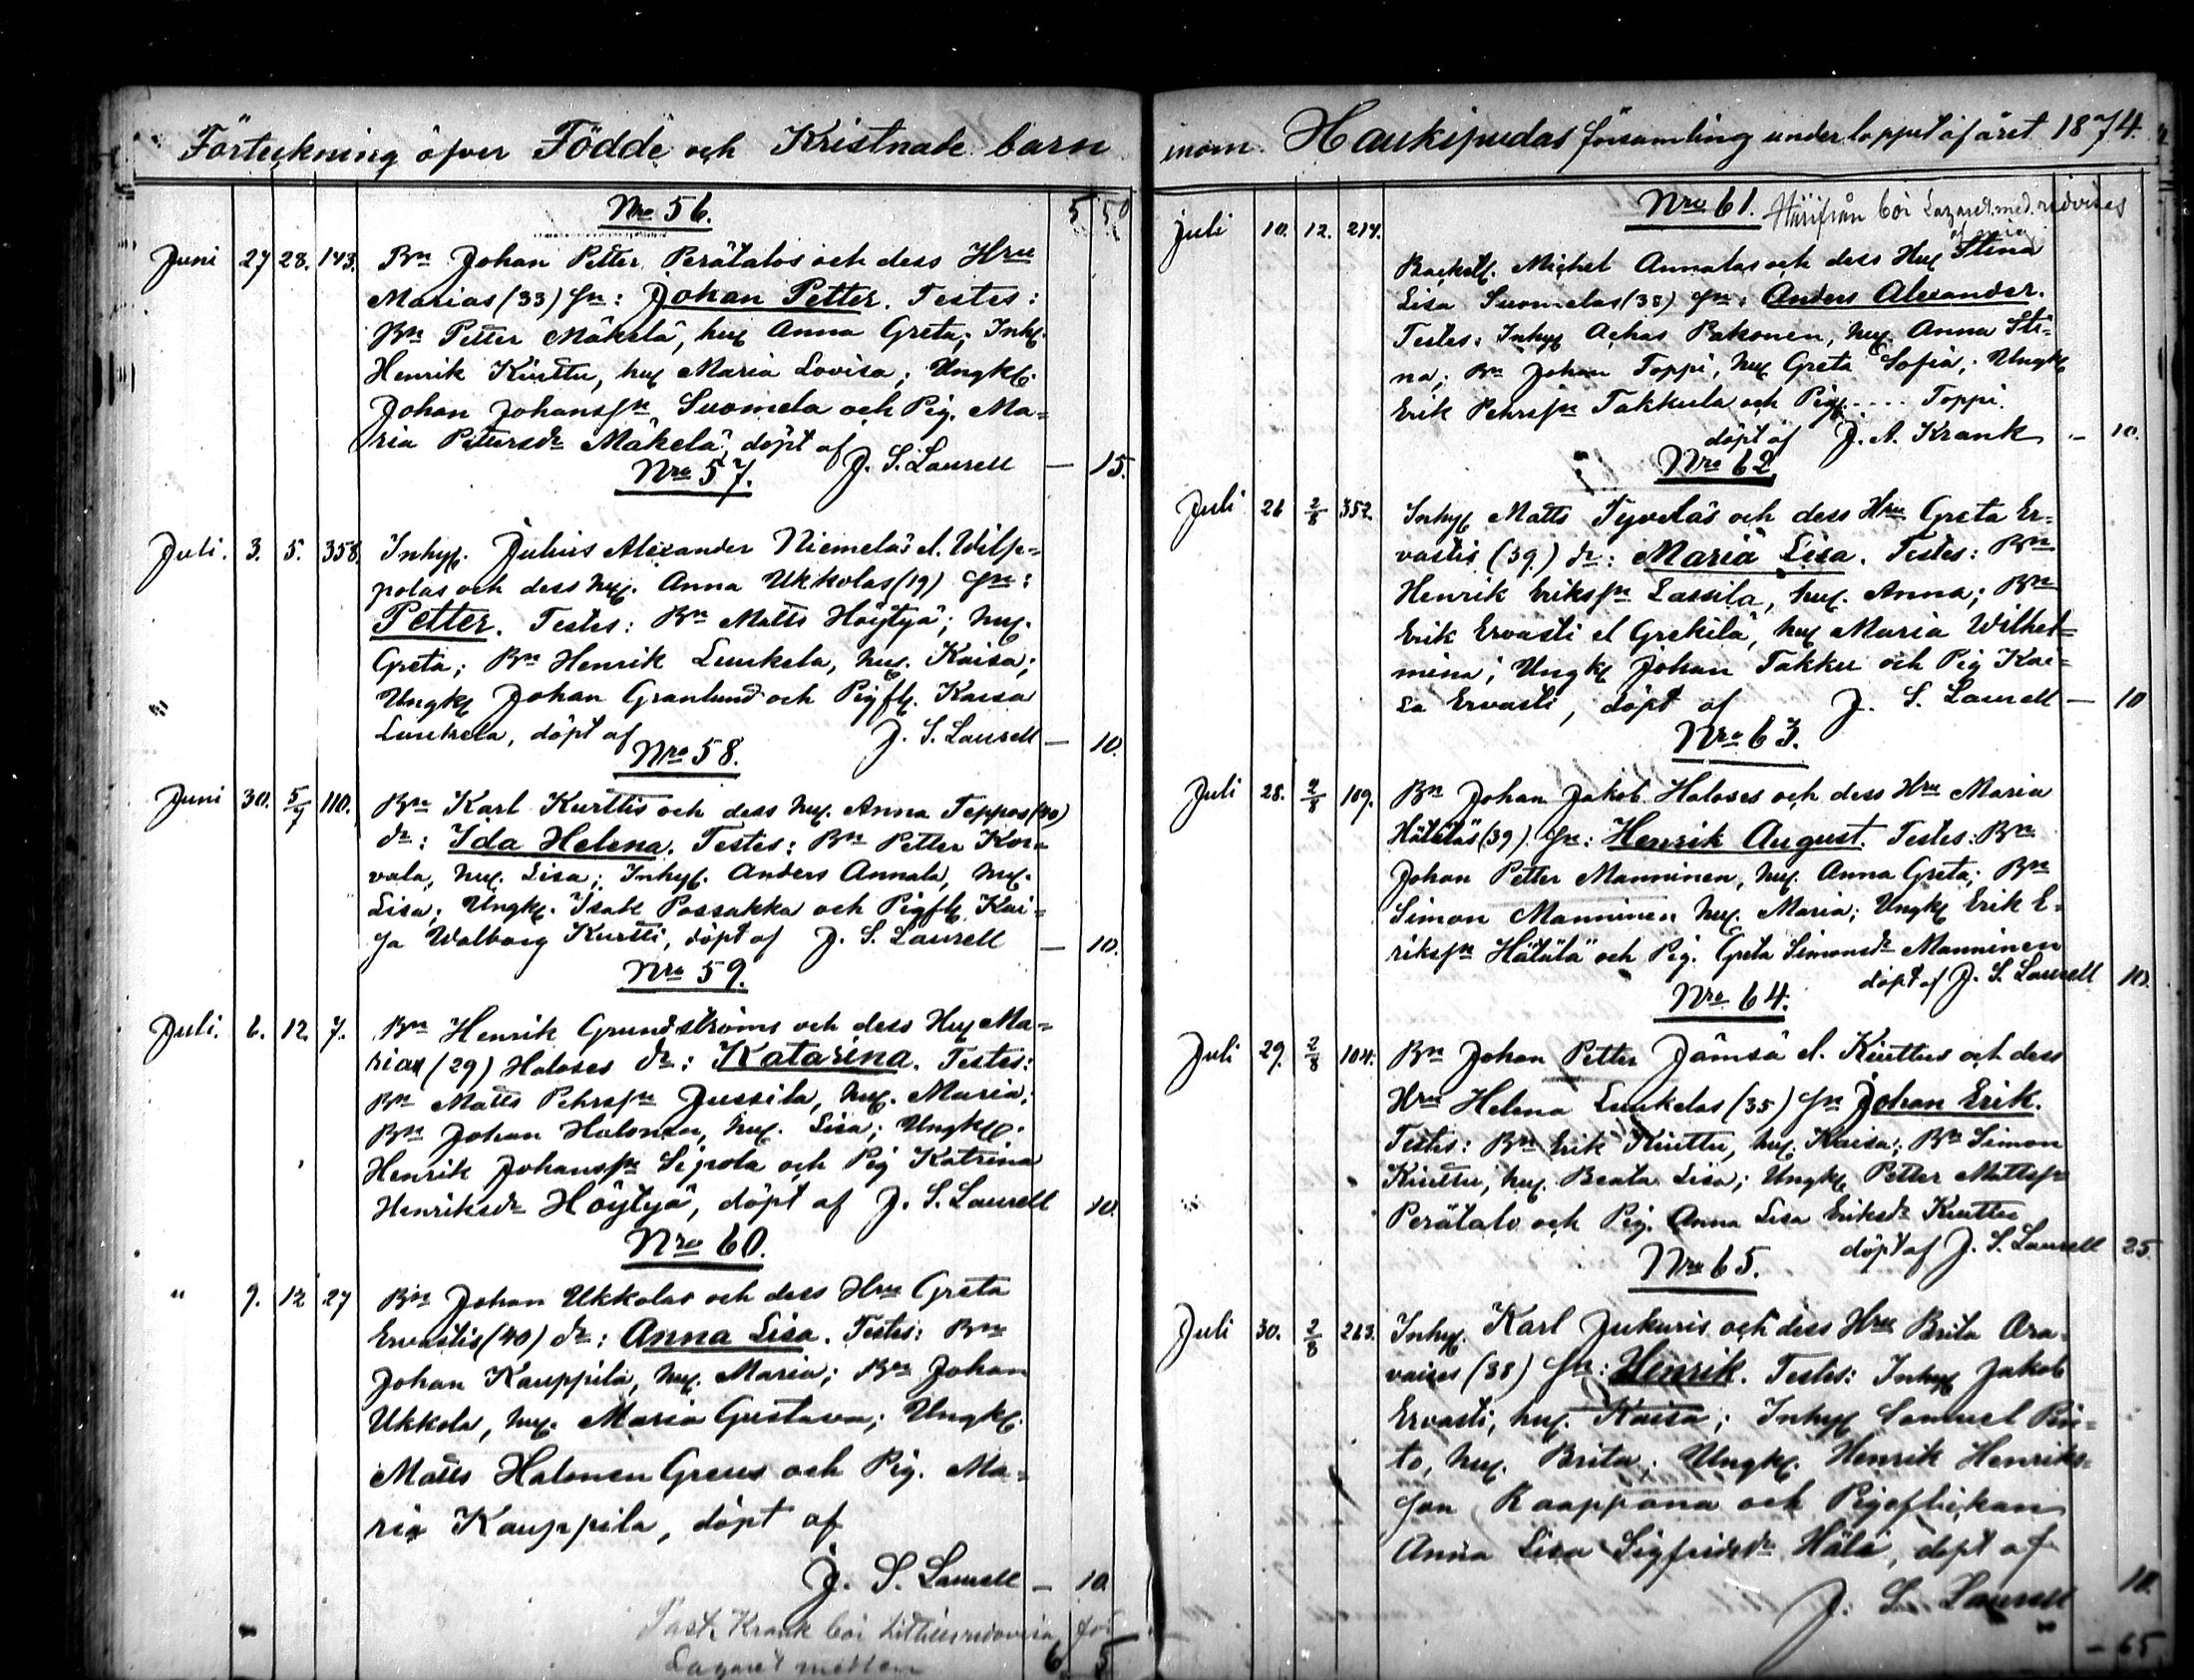 Förteckning öfver Födde och Kristnade barn
Nro 56. 5 50
Juni 27 28. 143. Bn Johan Petter Perätalos och dess Hru
Marias (33) Sn: Johan Petter. Testes:
Bn Petter Mäkelä, hu. Anna Greta; Inh.
Henrik Kiuttu, hu. Maria Lovisa; Ungk.
Johan Johanssn Suomela och Pig. Ma=
ria Pettersdr Mäkelä, döpt af
J. S. Laurell — 15.
Nro 57.
Juli. 3. 5. 358. Inhy. Julius Alexander Niemeläs el. Wilp=
polas och dess hu. Anna Ukkolas (19) Sn:
Petter. Testes: Bn Matts Höytyä; hu.
Greta; Bn Henrik Luukela, hu. Kaisa;
Ungk. Johan Granlund och Pigfl. Kaisa
Luukela, döpt af J. S. Laurell — 10.
Nro 58.
Juni 30. 5/7 110. Bn Karl Kurttis och dess hu. Anna Teppos (40)
dr: Ida Helena. Testes: Bn Petter Kor=
vala, hu. Lisa; Inhy. Anders Annala, hu.
Lisa; Ungk. Isak Possakka och Pigfl. Kai=
sa Walborg Kurtti, döpt af J. S. Laurell — 10.
Nro 59.
Juli. 6. 12. 7. Bn Henrik Grundströms och dess Hu. Ma=
rias (29) Haloses dr: Katarina. Testes:
Bn Matts Pehrssn Jussila, hu. Maria;
Bn Johan Halonen, hu. Lisa; Ungk.
Henrik Johanssn Sipola och Pig Katrina
Henriksdr Höytyä, döpt af J. S. Laurell 10.
Nro 60.
" 9. 12 27 Bn Johan Ukkolas och dess Hru Greta
Ervastis (40) dr: Anna Lisa. Testes: Bn
Johan Kauppila, hu. Maria; Bn Johan
Ukkola, hu. Maria Gustava; Ungk.
Matts Halonen Greus och Pig. Ma=
ria Kauppila, döpt af
J. S. Laurell — 10
Past. Krank bör redovisa för
Lazaret medlen 6 5
inom Haukipudas församling under loppet af året 1874.
Nro 61. Härifrån bör Lazaret. med. redovisas
af
Juli 10. 12. 214. Backst. Michel Annalas och dess Hu. Stina
Lisa Suomelas (38) Sn: Anders Alexander.
Testes: Inhy Achas Pakonen, hu. Anna Sti=
na; Bn Johan Toppi, hu. Greta Sofia; Ungk
Erik Pehrssn Takkula och Pig. .... Toppi.
döpt af J. A. Krank — 10.
Nro 62.
Juli 26 2/8 352. Inhy Matts Tyveläs och dess Hru Greta Er=
vastis (39.) dr: Maria Lisa. Testes: Bn
Henrik Erikssn Lassila, hu. Anna; Bn
Erik Ervasti el Grekilä, hu Maria Wilhel=
mina; Ungk Johan Takku och Pig Kai=
sa Ervasti, döpt af J. S. Laurell — 10
Nro 63.
Juli 28. 2/8 109. Bn Johan Jakob Haloses och dess Hru Maria
Hätäläs (39) Sn: Henrik August. Testes: Bn
Johan Petter Manninen, hu. Anna Greta; Bn
Simon Manninen hu. Maria; Ungk Erik E=
rikssn Hätälä och Pig. Greta Simonsdr Manninen
döpt af J. S. Laurell 10.
Nro 64.
Juli 29. 2/8 104. Bn Johan Petter Jämsä el. Kiuttus och dess
Hru Helena Luukelas (35) Sn Johan Erik.
Testes: Bn Erik Kiuttu, hu. Kaisa; Bn Simon
Kiuttu, hu. Beata Lisa; Ungk Petter Mattssn
Perätalo och Pig. Anna Lisa Eriksdr Kiuttu
döpt af J. S. Laurell 25.
Nro 65.
Juli 30. 2/8 263. Inhy. Karl Jukuris och dess Hru Brita Ara=
vaises (38) Sn: Henrik. Testes: Inhy Jakob
Ervasti, hu. Kaisa; Inhy Samuel Pii=
to, hu. Brita; Ungk. Henrik Henriks=
son Raappana och Pigoflickan
Anna Lisa Sigfridsdr Häli, döpt af
J. S. Laurell 10.
— 65